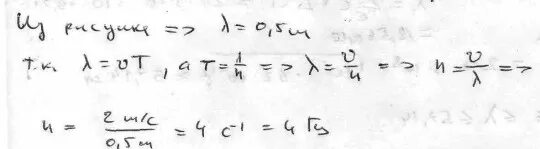 Из рисунка => λ = 0,5 м
т.к. λ = υT, а T = 1/n => λ = υ/n => n = υ/λ =>
n = 2 м/с / 0,5 м = 4 с⁻¹ = 4 Гц